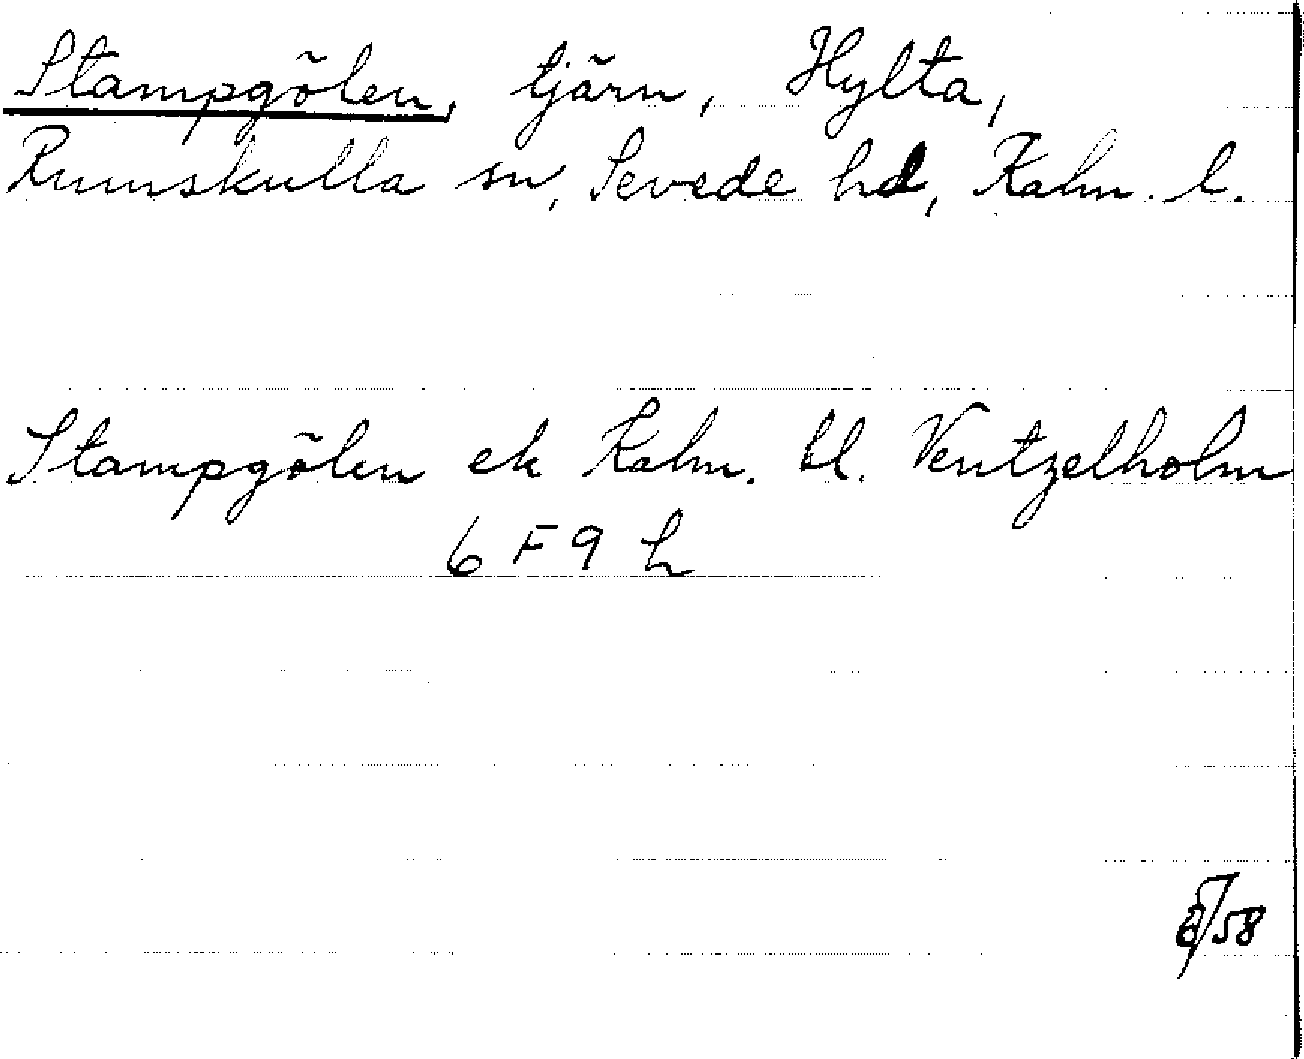 Stampgölen, tjärn, Hylta,
Rumskulla sn, Sevede hd, Kalm. l.
Stampgölen ek Kalm. bl. Ventzelholm
6 F 9 h
58